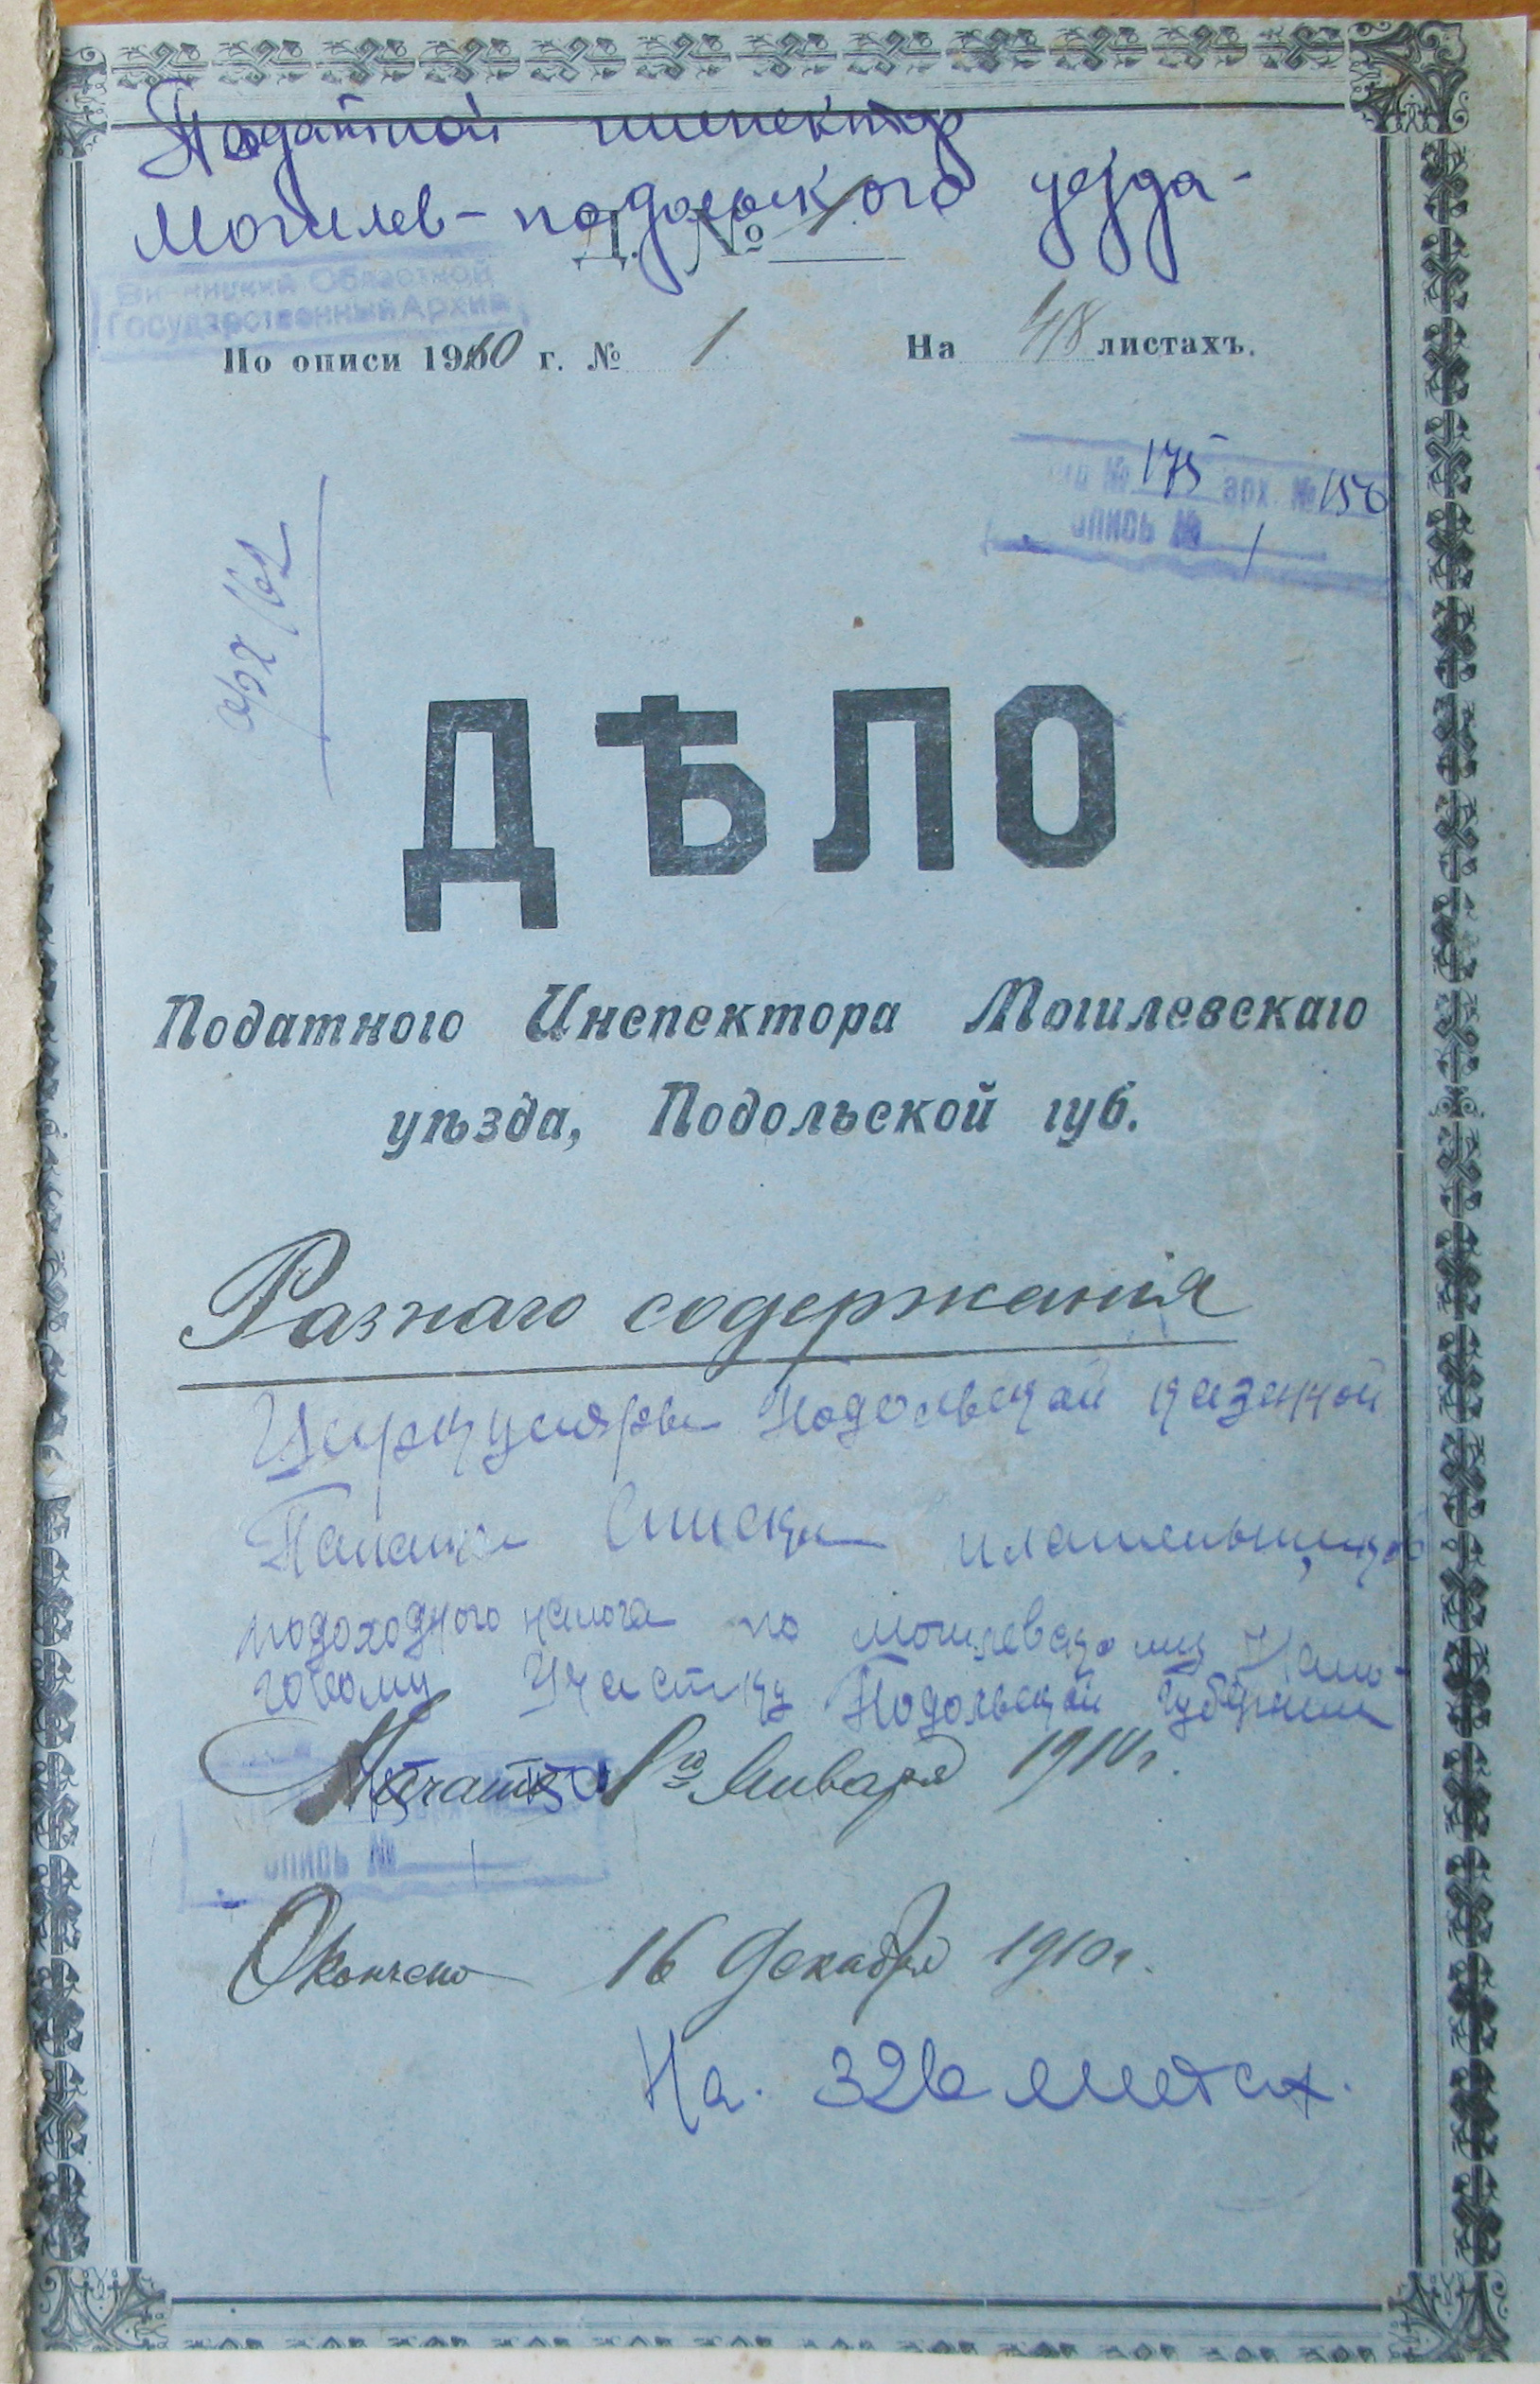 Податной инспектор
Могилев-подольского уезда-
Д. № 1.
Винницкий Областной
Государственный Архив
По описи 1910 г. № 1. На 418 листахъ.
№ 175 арх. №
опись № 1
арх 162
ДѢЛО
Податного Инспектора Могилевскаго
уѣзда, Подольской губ.
Разнаго содержанія
Циркуляры Подольской казенной
Палаты Списки плательщиков
подоходного налога по могилевскому Нало-
говому Участку Подольской Губернии
Начато 1го Января 1910 г.
опись № 1
Окончено 16 Декабря 1910 г.
На. 326 листах.